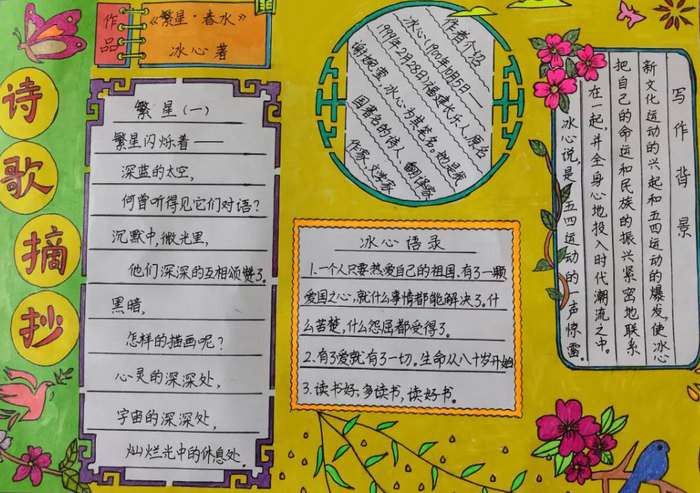 诗歌摘抄
作品
《繁星·春水》
冰心著
繁星（一）
繁星闪烁着——
深蓝的太空，
何曾听得见它们对语？
沉默中，微光里，
他们深深的互相颂赞了。
黑暗，
怎样的描画呢？
心灵的深深处，
宇宙的深深处，
灿烂光中的休息处。
作者介绍
冰心（1900年10月5日——
1999年2月28日）福建长乐人，原名
谢婉莹，冰心为其笔名。她是我
国著名的诗人，翻译家
作家，文学家
冰心语录
1.一个人只要热爱自己的祖国，有了一颗
爱国之心，就什么事情都能解决了。什
么苦楚，什么怨屈都受得了。
2.有了爱就有了一切。生命从八十岁开始
3.读书好，多读书，读好书。
写作背景
冰心说，是“五四运动的一声惊雷
在一起，并全身心地投入时代潮流之中。
把自己的命运和民族的振兴紧密地联系
新文化运动的兴起和五四运动的爆发，使冰心